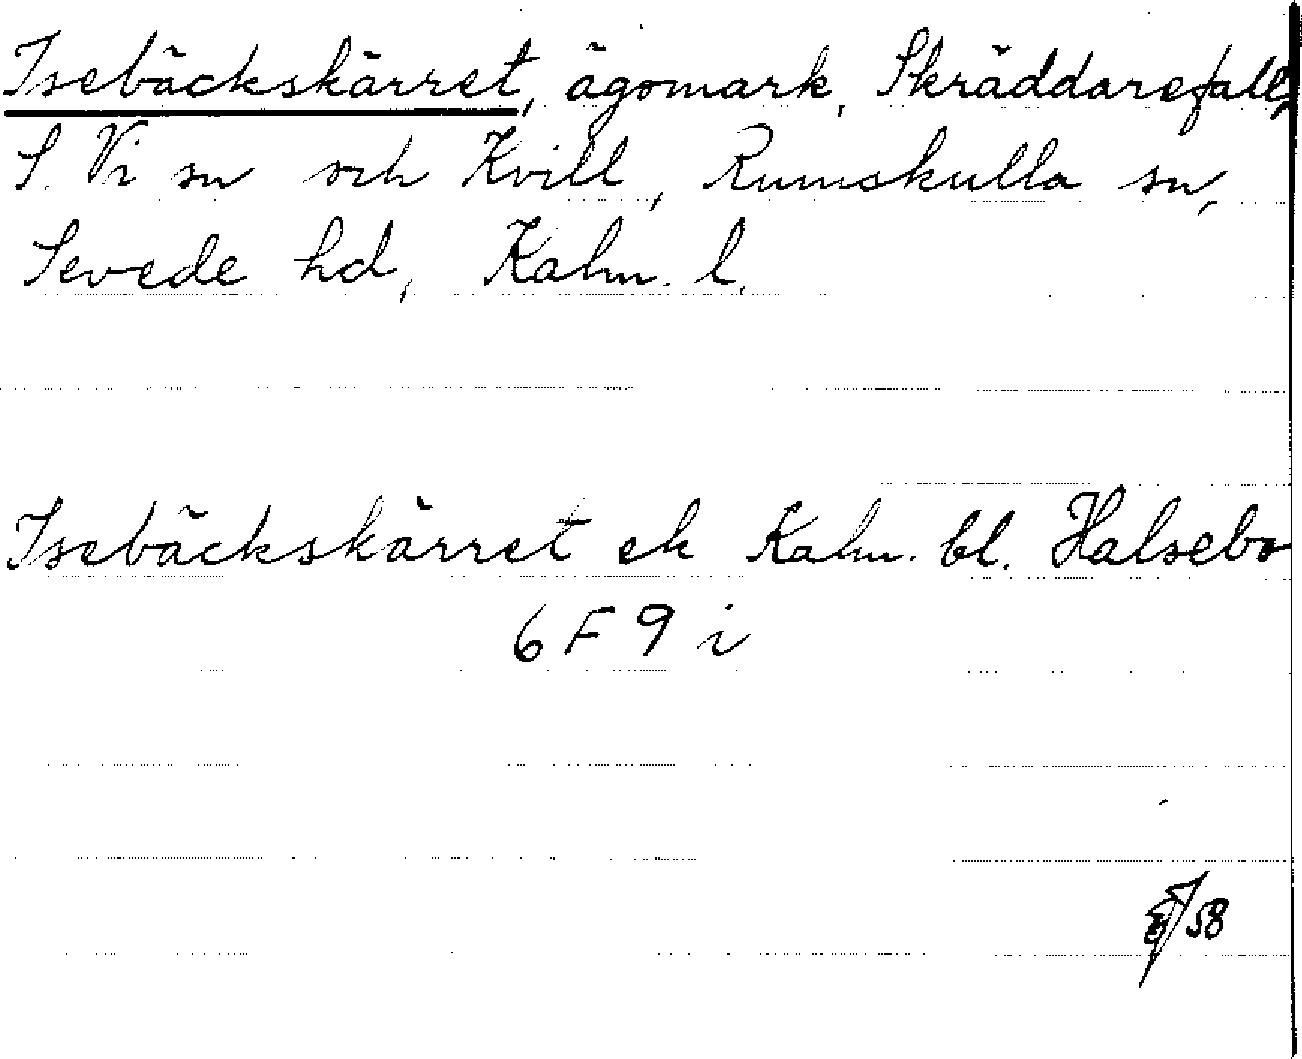 Isebäckskärret, ägomark, Skräddarefall,
S. Vi sn och Kvill, Rumskulla sn,
Sevede hd, Kalm. l.
Isebäckskärret ek Kalm. bl. Halsebo
6 F 9 i
58